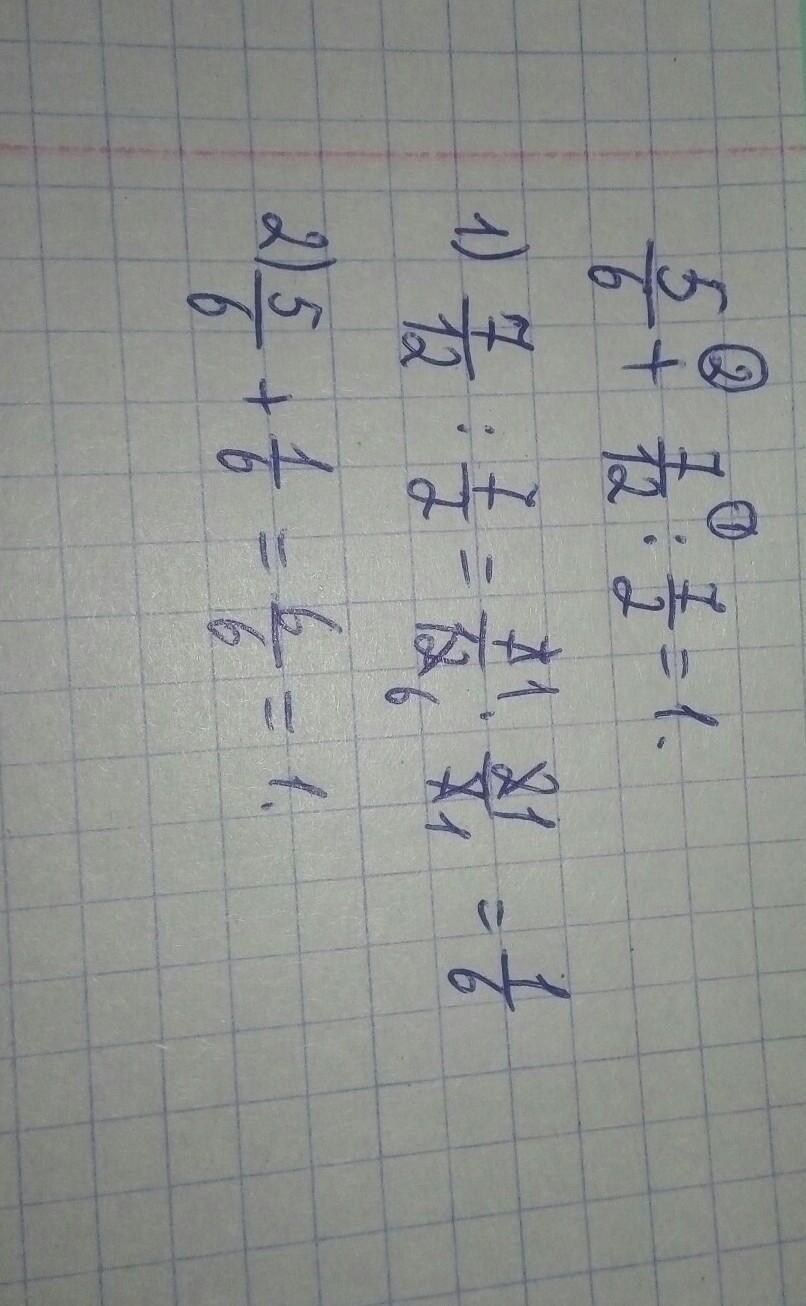 5/6 +② 7/12 :① 7/2 = 1.
1) 7/12 : 7/2 = 7 1/12 6 · 2 1/7 1 = 1/6
2) 5/6 + 1/6 = 6/6 = 1.